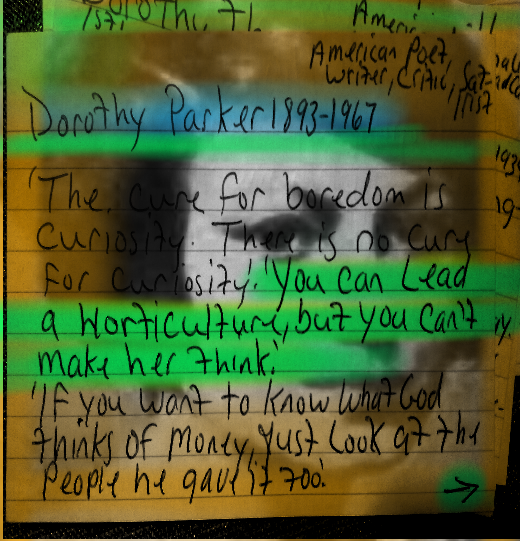 American Poet,
Writer, Critic, Sat-
irist
Dorothy Parker 1893-1967
'The cure for boredom is
curiosity. There is no cure
for curiosity.' 'You can Lead
a Horticulture, but you can't
make her think.'
'If you want to know what God
thinks of money, just look at the
people he gave it too.'